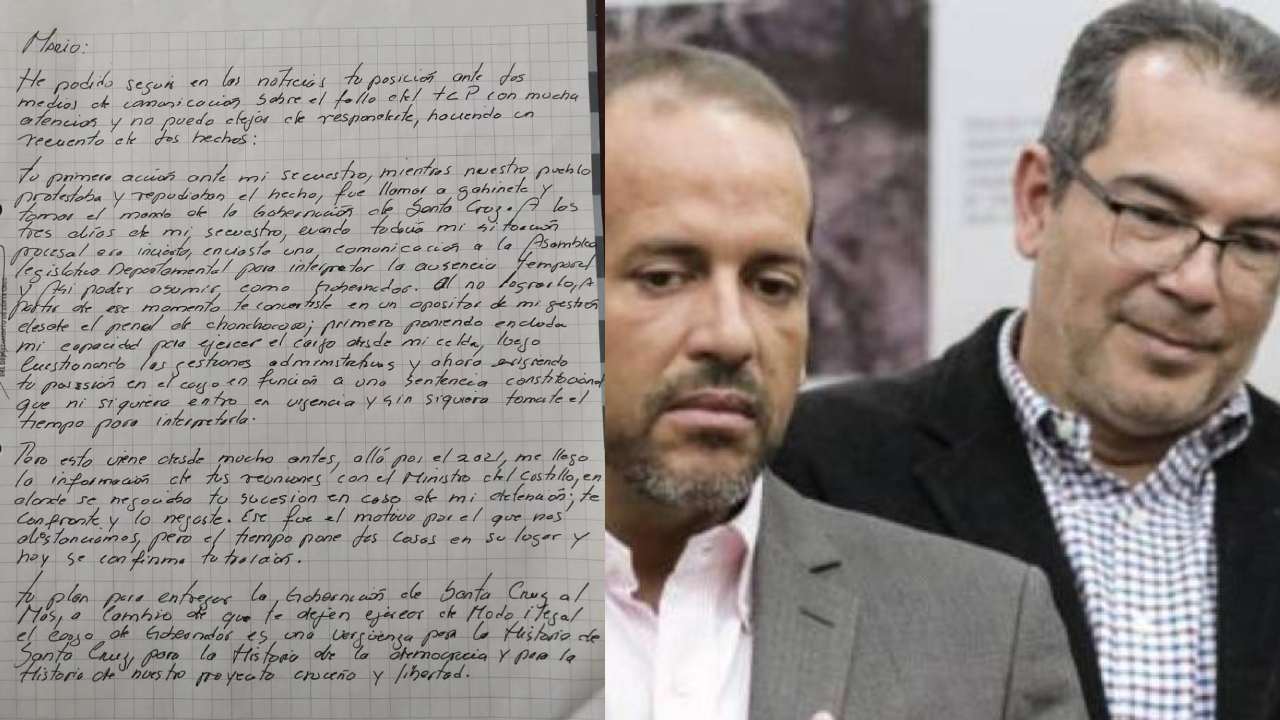 Mario:
He podido seguir en las noticias tu posición ante los
medios de comunicación sobre el fallo del TCP con mucha
atención y no puedo dejar de responderte, haciendo un
recuento de los hechos:
Tu primera acción ante mi secuestro, mientras nuestro pueblo
protestaba y repudiaban el hecho, fue llamar a gabinete y
tomar el mando de la Gobernación de Santa Cruz. A los
tres días de mi secuestro, cuando todavía mi situación
procesal era incierta, enviaste una comunicación a la Asamblea
legislativa Departamental para interpretar la ausencia temporal
y Así poder asumir como Gobernador. Al no lograrlo, A
partir de ese momento te convertiste en un opositor de mi gestión
desde el penal de chonchocoro; primero poniendo en duda
mi capacidad para ejercer el cargo desde mi celda, luego
Cuestionando las gestiones administrativas y ahora exigiendo
tu posesión en el cargo en función a una sentencia constitucional
que ni siquiera entro en vigencia y sin siquiera tomarte el
tiempo para interpretarla.
Pero esto viene desde mucho antes, allá por el 2021, me llego
la información de tus reuniones con el Ministro del Castillo, en
donde se negociaba tu sucesión en caso de mi detención; te
confronte y lo negaste. Ese fue el motivo por el que nos
distanciamos, pero el tiempo pone las cosas en su lugar y
hoy se confirma tu traición.
Tu plan para entregar la Gobernación de Santa Cruz al
Mas, a cambio de que te dejen ejercer de Modo ilegal
el cargo de Gobernador es una vergüenza para la Historia de
Santa Cruz, para la Historia de la democracia y para la
Historia de nuestro proyecto cruceño y libertad.